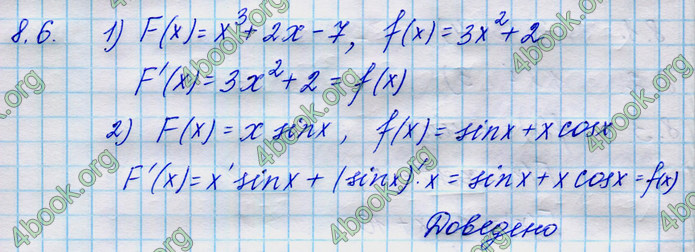 8.6. 1) F(x) = x³ + 2x - 7, f(x) = 3x² + 2
F'(x) = 3x² + 2 = f(x)
2) F(x) = x sinx, f(x) = sinx + x cosx
F'(x) = x' sinx + (sinx)' · x = sinx + x cosx = f(x)
Доведено
4book.org
4book.org
4book.org
4book.org
4book.org
4book.org
4book.org